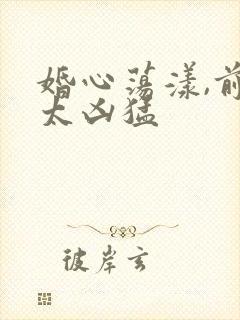 婚心荡漾,前
太凶猛
彼岸玄